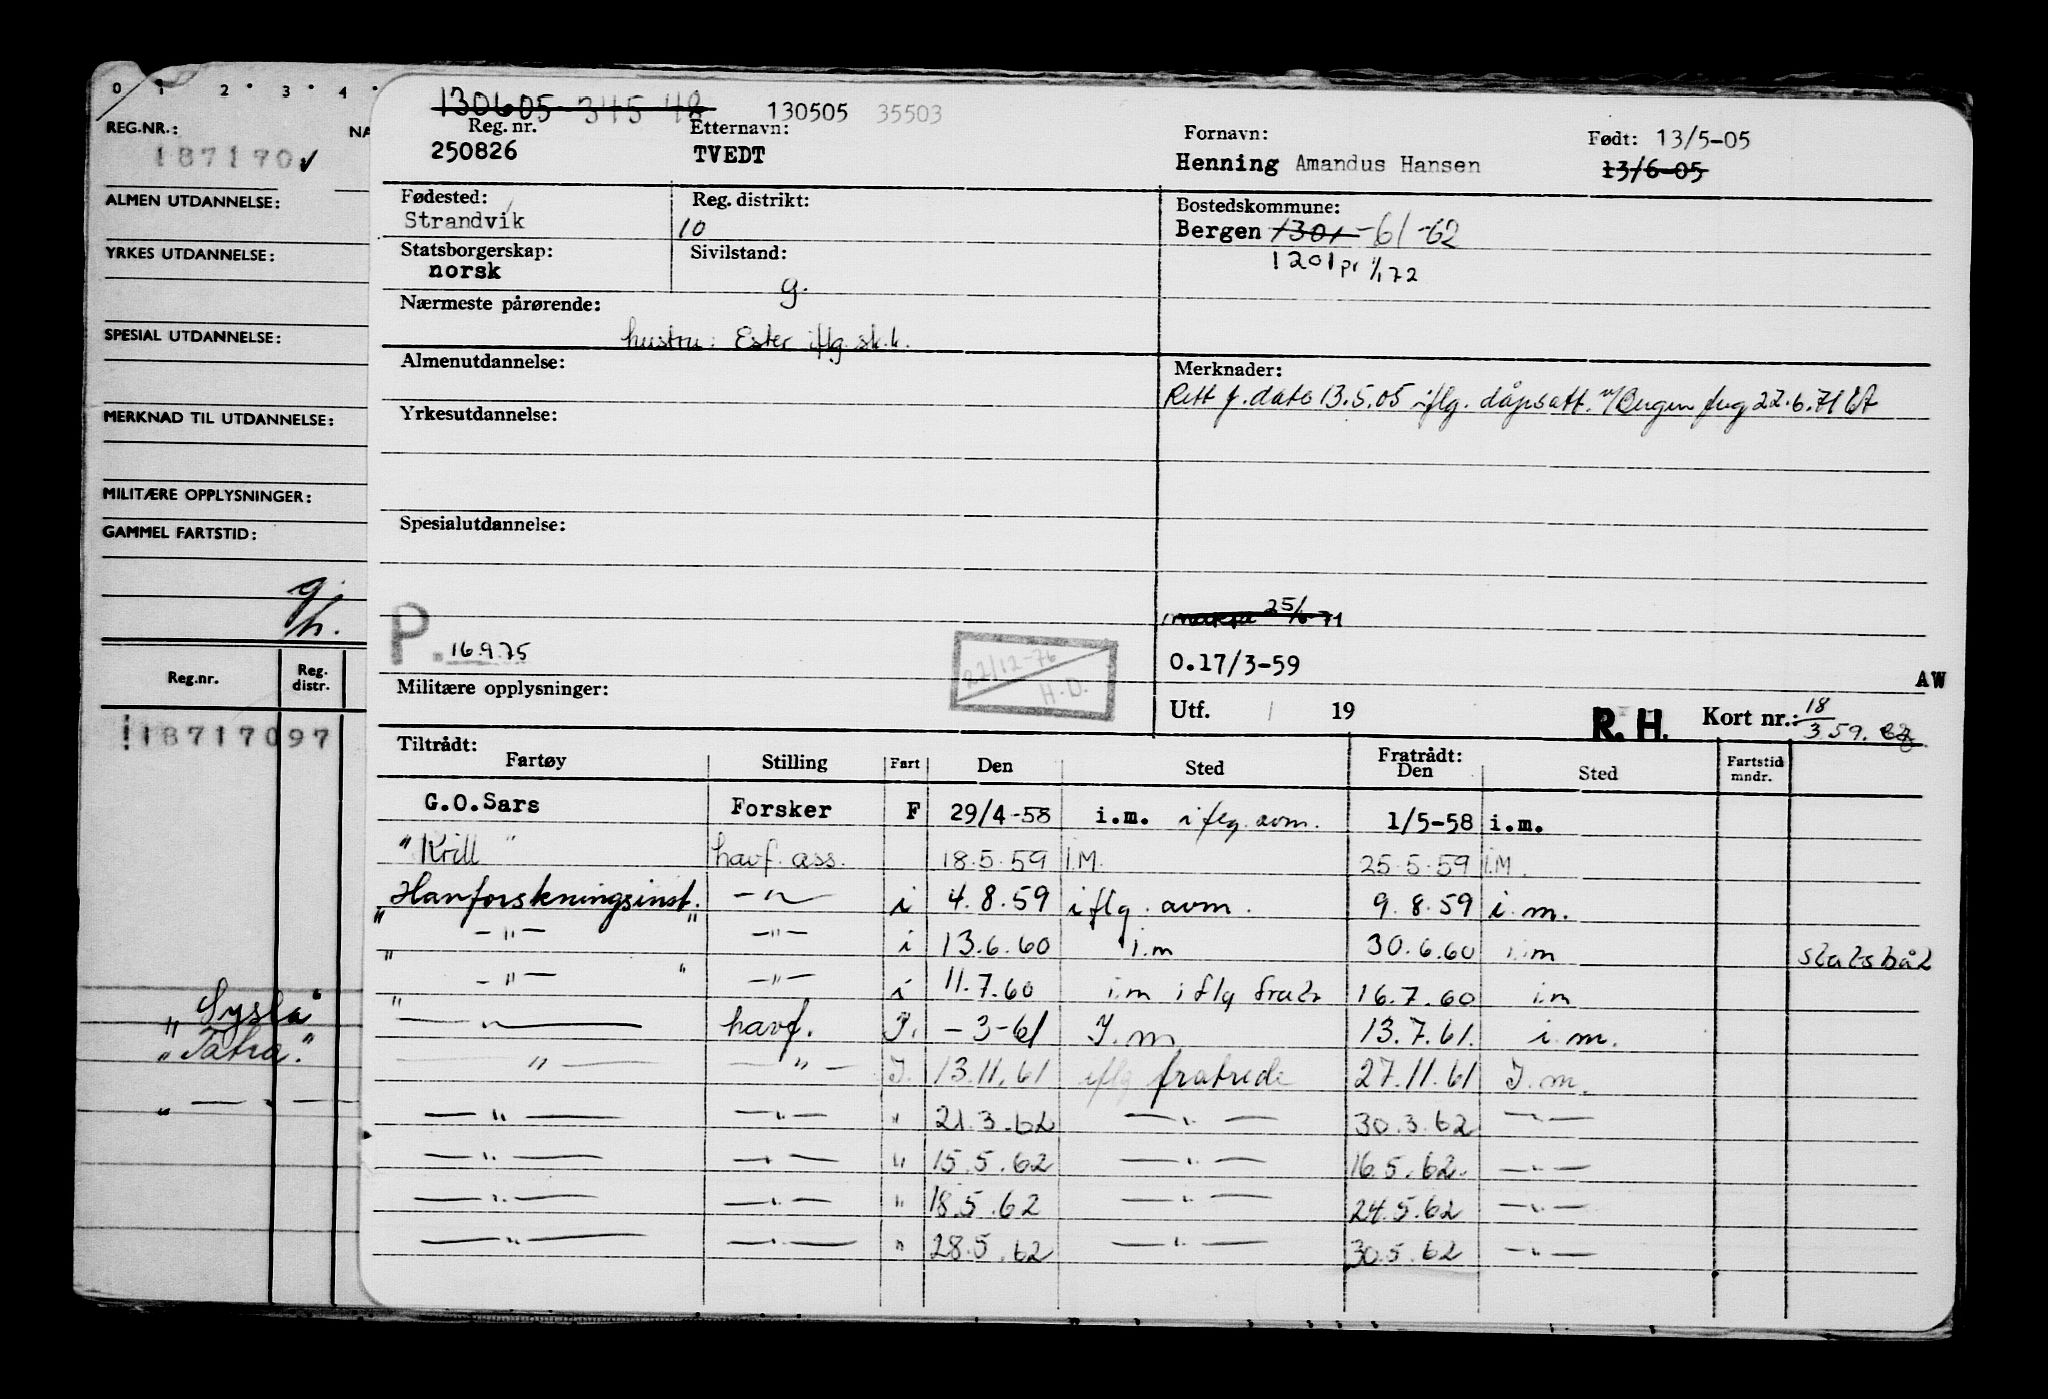 0 1 2 3 4
REG.NR.: NA
187170 ✓
ALMEN UTDANNELSE:
YRKES UTDANNELSE:
SPESIAL UTDANNELSE:
MERKNAD TIL UTDANNELSE:
MILITÆRE OPPLYSNINGER:
GAMMEL FARTSTID:
Reg.nr. Reg. distr.
118717097
"Sysla"
"Tatra."
" — " —
130605 345 48 130505 35503
Reg. nr. Etternavn: Fornavn: Født: 13/5-05
250826 TVEDT Henning Amandus Hansen 13/6-05
Fødested: Reg. distrikt: Bostedskommune:
Strandvik 10 Bergen 1301 -61 -62
Statsborgerskap: Sivilstand: 1201 pr 1/1 72
norsk g.
Nærmeste pårørende:
hustru: Ester iflg. sk.k.
Almenutdannelse: Merknader:
Rett f. dato 13.5.05 iflg. dåpsatt. m/Bergen 22.6.71
Yrkesutdannelse:
Spesialutdannelse:
25/6 71
P. 16.9.75 22/12-76 H.D. O.17/3-59
AW
Militære opplysninger: Utf. 19 R.H. Kort nr.: 18/3 59.
Tiltrådt: Fratrådt:
Fartøy Stilling Fart Den Sted Den Sted Fartstid mndr.
G.O.Sars Forsker F 29/4-58 i.m. iflg avm. 1/5-58 i.m.
"Krill" havf. ass. 18.5.59 I.M. 25.5.59 I.M.
"Havforskningsinst." — " — i 4.8.59 iflg. avm. 9.8.59 i.m.
" — " — — " — i 13.6.60 i.m 30.6.60 i.m statsbåt
" — " — " — " — i 11.7.60 i.m iflg fratr 16.7.60 i.m
— " — havf. I. - 3-61 I.m 13.7.61. i.m.
— " — — " — I. 13.11.61 iflg fratrede 27.11.61 I.m.
— " — — " — " 21.3.62 — " — 30.3.62 — " —
— " — — " — " 15.5.62 — " — 16.5.62. — " —
— " — — " — " 18.5.62 — " — 24.5.62 — " —
— " — — " — " 28.5.62 — " — 30.5.62 — " —